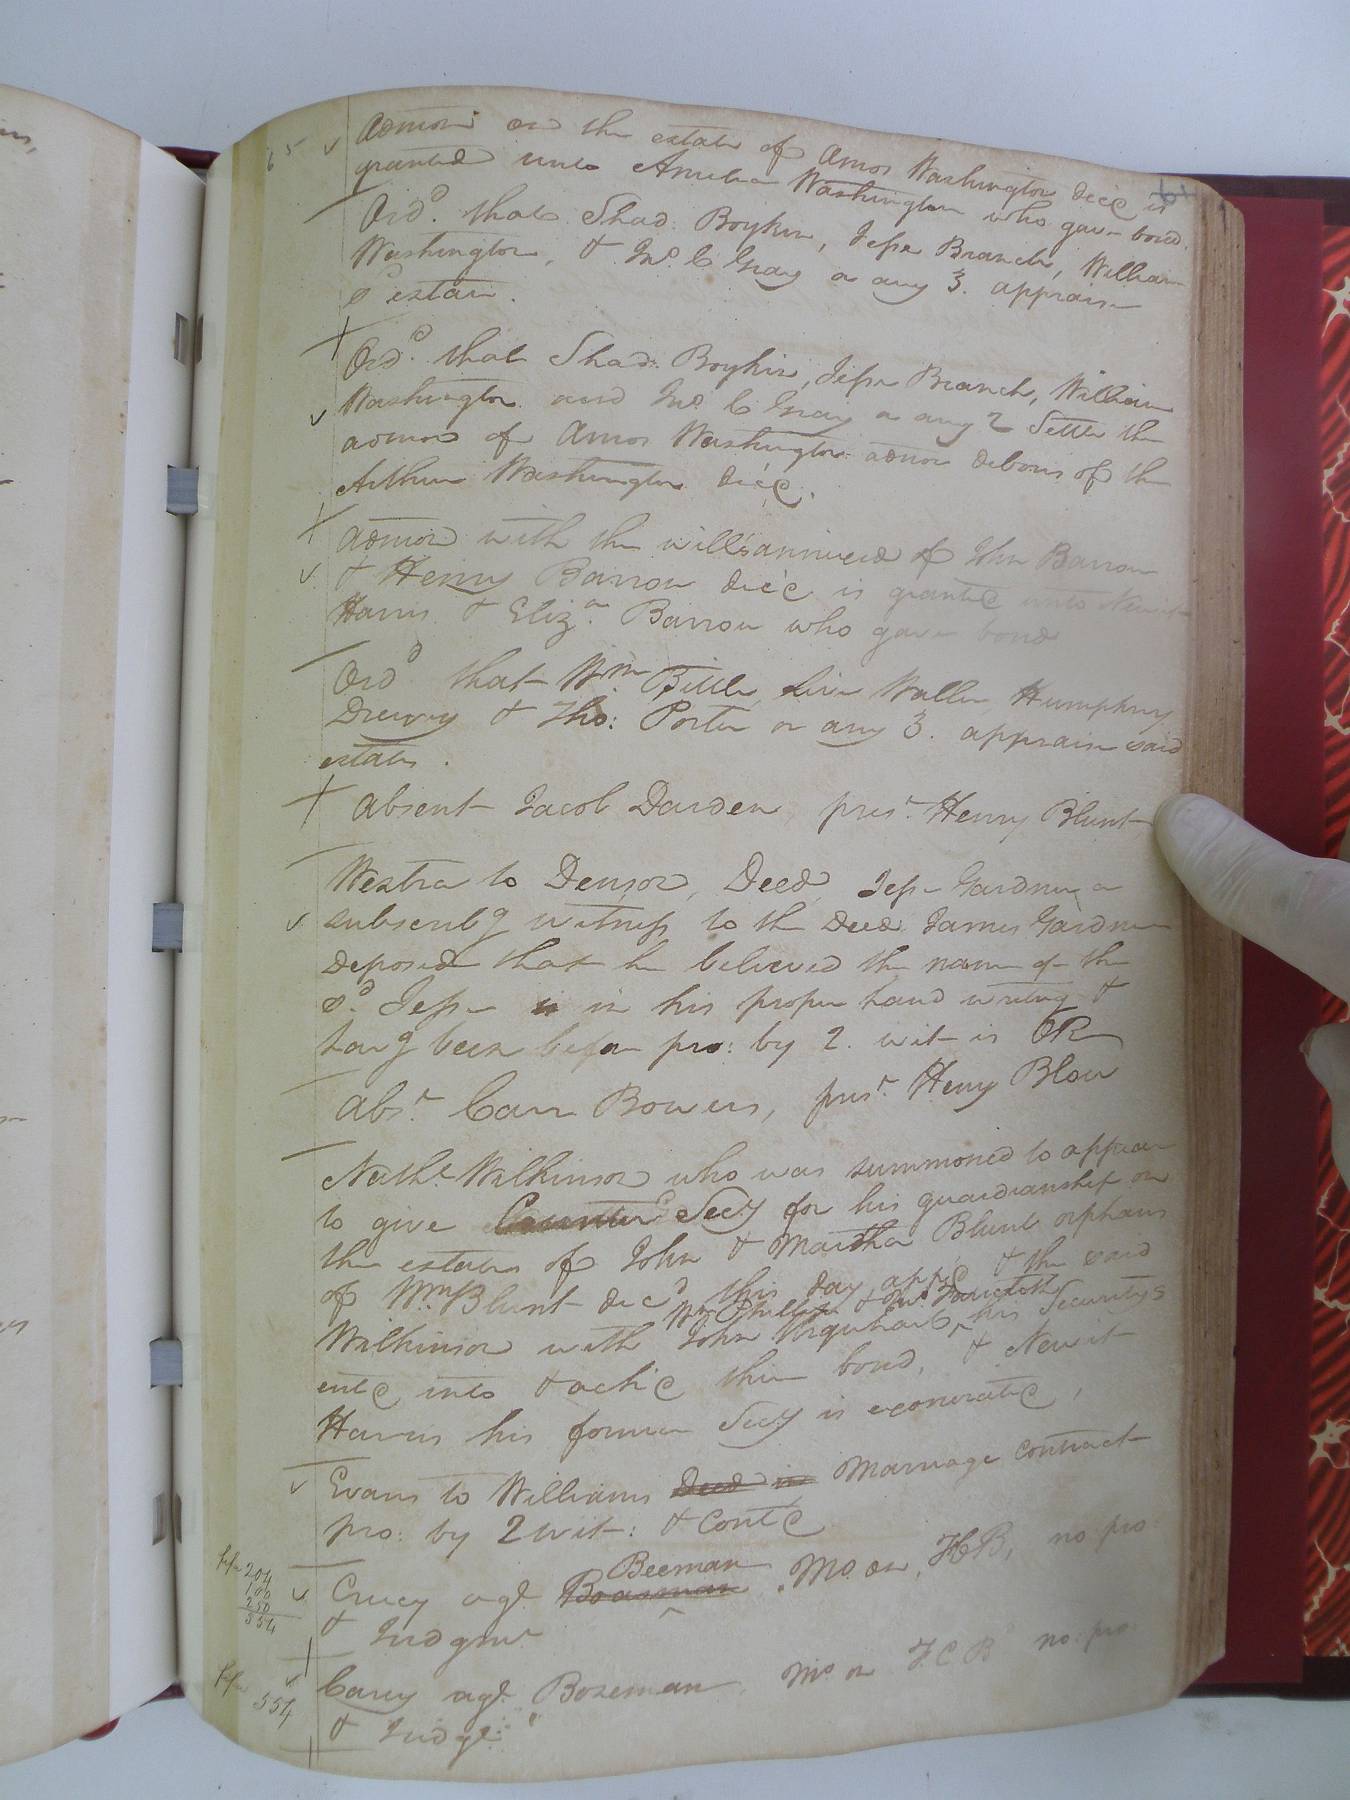 65
61
Admon on the estate of Amos Washington Dec'd is
granted unto Amelia Washington who gave bond
Ord.d that Shad. Boykin, Jesse Branch, William
Washington, & Jno. C Gray or any 3. appraise
sd estate.
Ord.d that Shad: Boykin, Jesse Branch, William
Washington and Jno. C Gray or any 2 Settle the
admon of Amos Washington admor debonis of the
Arthur Washington Dec'd.
Admon with the wills annexed of John Barrow
& Henry Barrow Dec'd is granted unto Newit
Harris & Eliz.a Barrow who gave bond
Ord.d that Wm. Bittle, Waller, Humphrey
Drewry & Tho: Porter or any 3. appraise said
estates.
Absent Jacob Darden, pres.t Henry Blunt
Westra to Denson, Deed, Jesse Gardner a
subscrib'g witness to the Deed James Gardner
deposed that he believed the name of the
sd. Jesse is in his proper hand writing &
hav'g been before pro: by 2. wit is OR
Abs.t Carr Bowers, pres.t Henry Blow
Nath.l Wilkinson who was summoned to appear
to give Counter Sec.y for his guardianship on
the estates of John & Martha Blunt orphans
of Wm. Blunt dec'd this day app.d & the said
Wm. Phillips & Jno.
Wilkinson with John Urquhart his Securitys
ent'd into & ack'd their bond, & Newit
Harris his former Sec.y is exonerated,
Evans to Williams Deed is Marriage contract
pro: by 2 wit: & cont'd
204
100
250
554
Beeman
agt. Boasman. Mo. on, FCB, no pro:
& Judgmt
554
Carey agt. Bozeman Mo. on FCB no pro:
& Judgt.